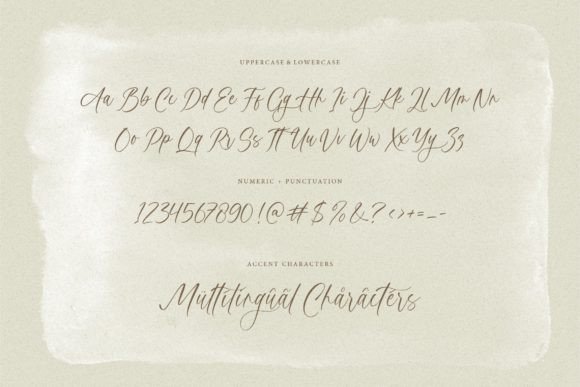 UPPERCASE & LOWERCASE
Aa Bb Cc Dd Ee Ff Gg Hh Ii Jj Kk Ll Mm Nn
Oo Pp Qq Rr Ss Tt Uu Vv Ww Xx Yy Zz
NUMERIC + PUNCTUATION
1234567890!@#$%&?<>+=_-
ACCENT CHARACTERS
Mültilíngûãl Chårâctérs